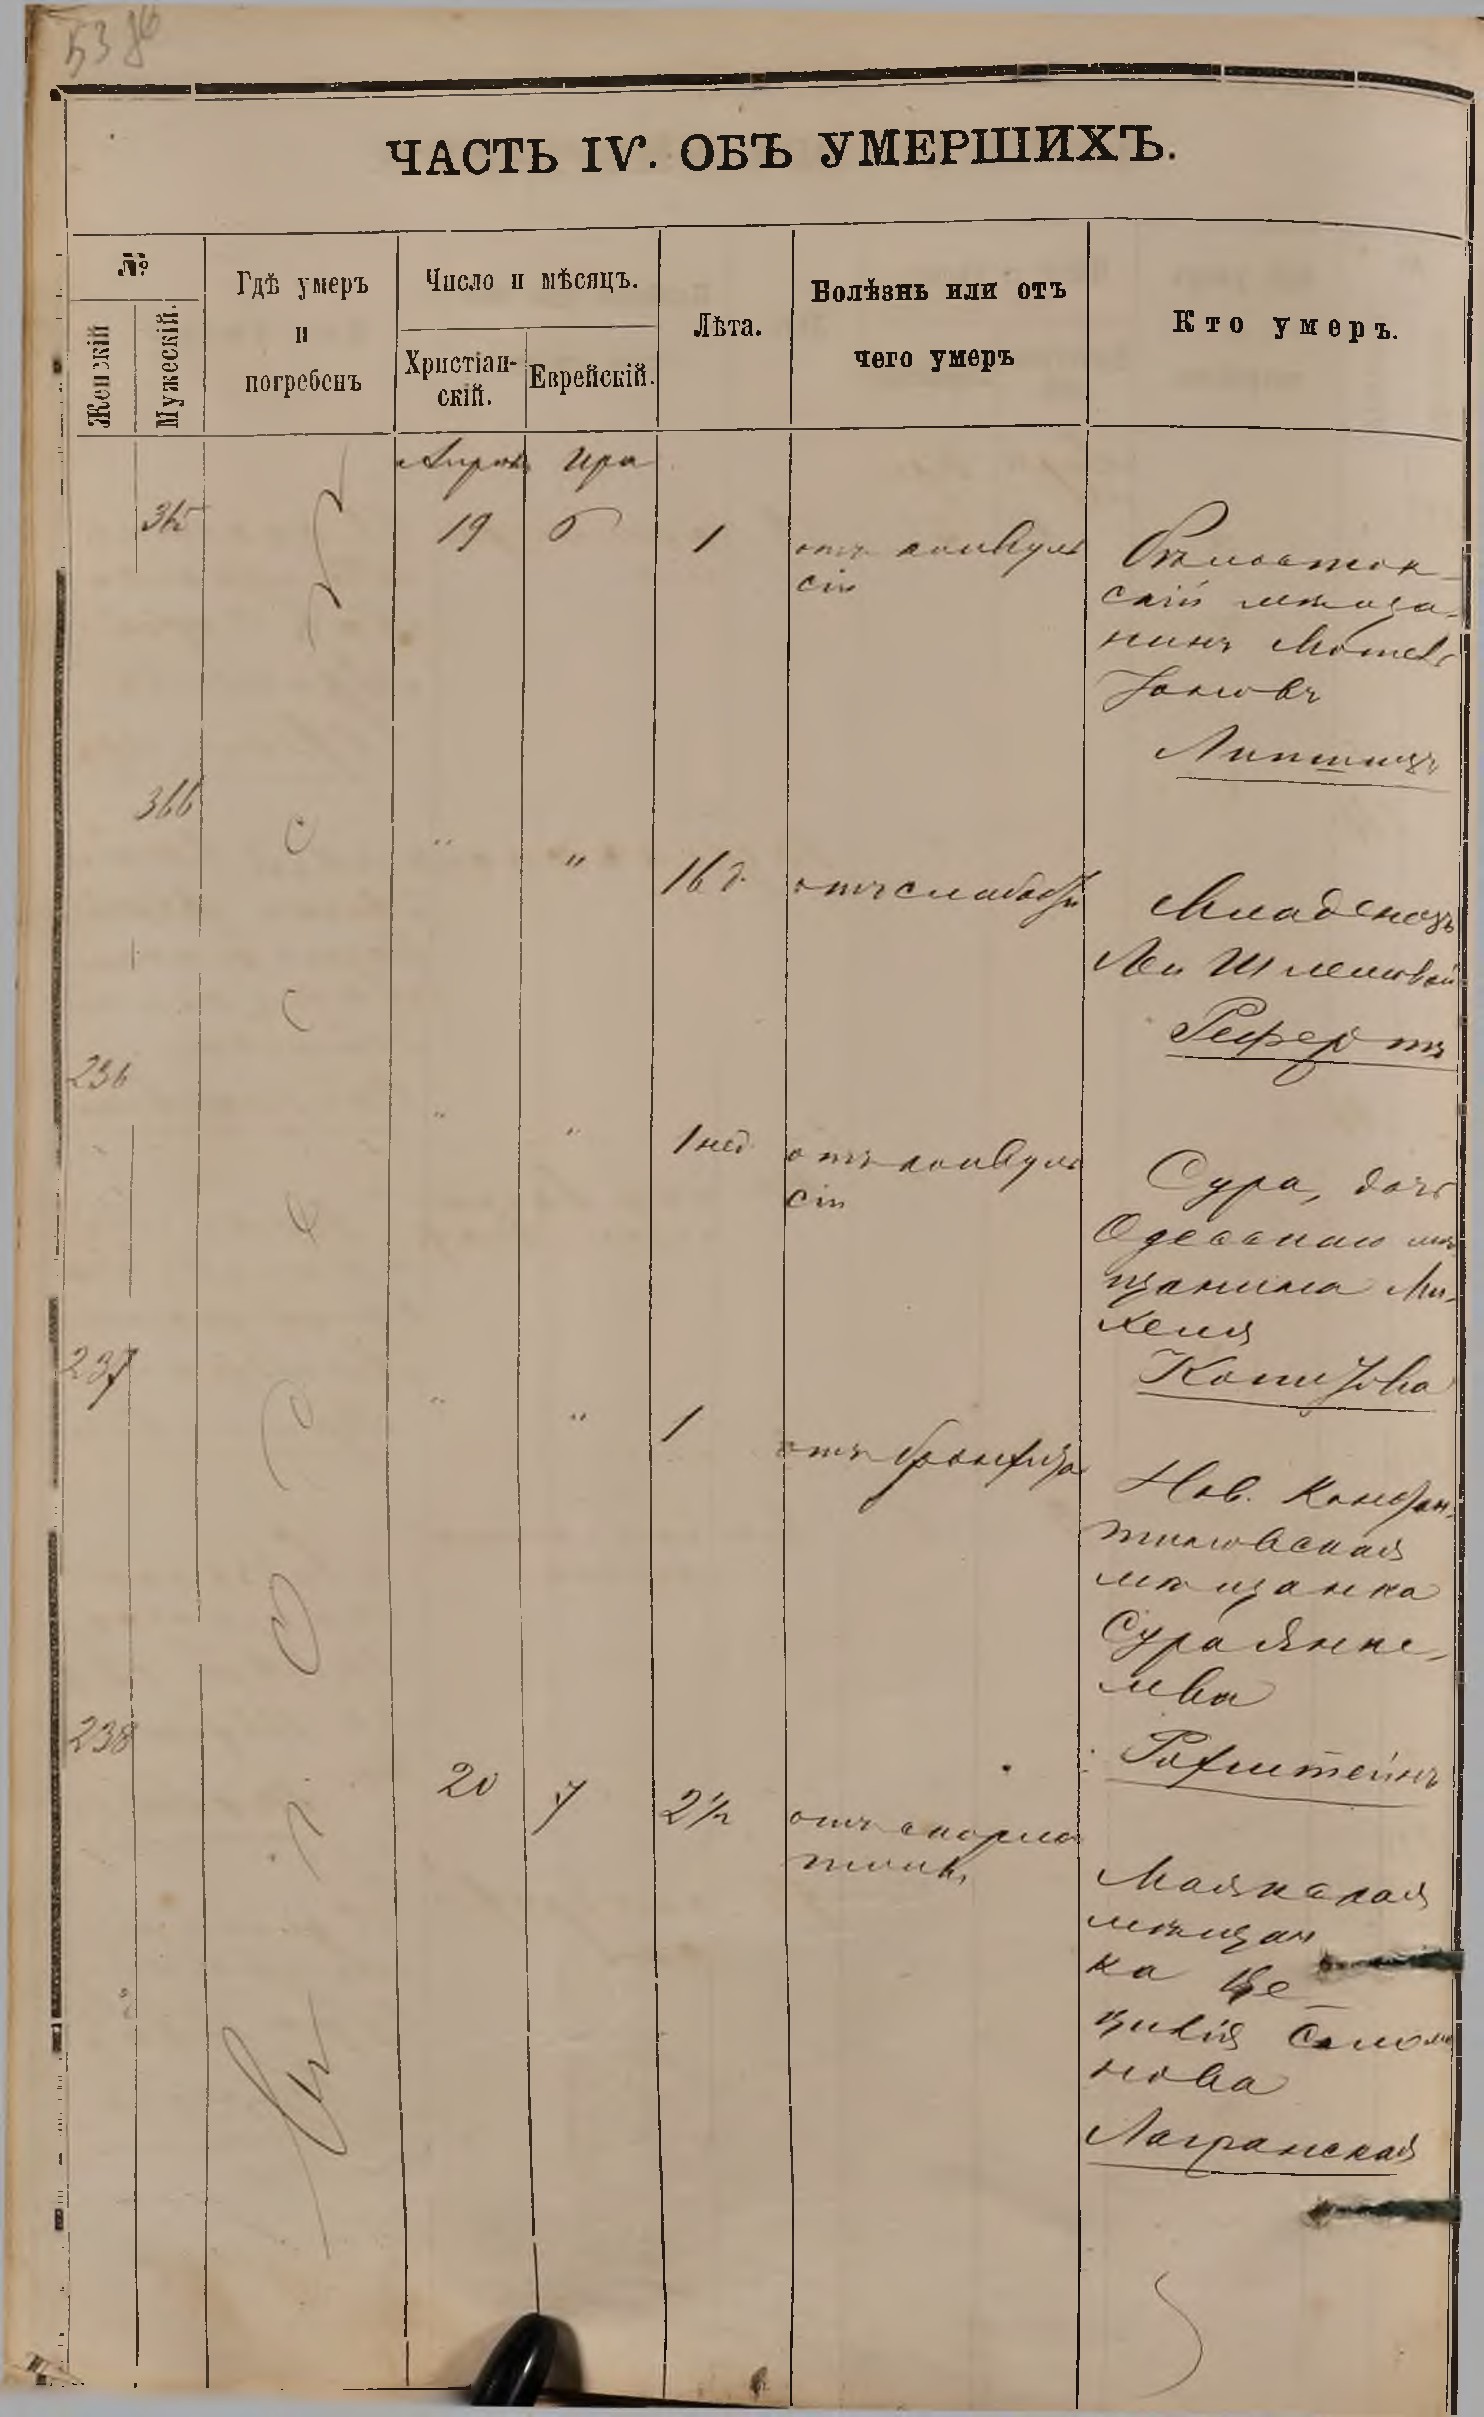 53 об
ЧАСТЬ IV. ОБЪ УМЕРШИХЪ.
№
Женскій
Мужескій.
Гдѣ умеръ
и
погребенъ
Число и мѣсяцъ.
Христіан-
скій.
Еврейскій.
Лѣта.
Болѣзнь или отъ
чего умеръ
Кто умеръ.
Апрѣль Ира
365
19 6 1 отъ конвуль
сіи
Бѣлосток-
скій мѣща-
нинъ Мошек
Липшицъ
366
" " 16 д. отъ слабости
Младенецъ
Леи Шлемовой
Рефертъ
236
" " 1 нед. отъ конвуль
сіи
Сура, дочь
Одесскаго мѣ
щанина Ми-
хеля
Копизова
237
" " 1 отъ бронхита
Нов. Констан-
тиновская
мѣщанка
Сура Янке-
лева
Рохштейнъ
238
20 7 2½ отъ скарла
тины
Маякская
мѣщан
ка
Соломо
нова
Лагранская
Въ г. Одессѣ